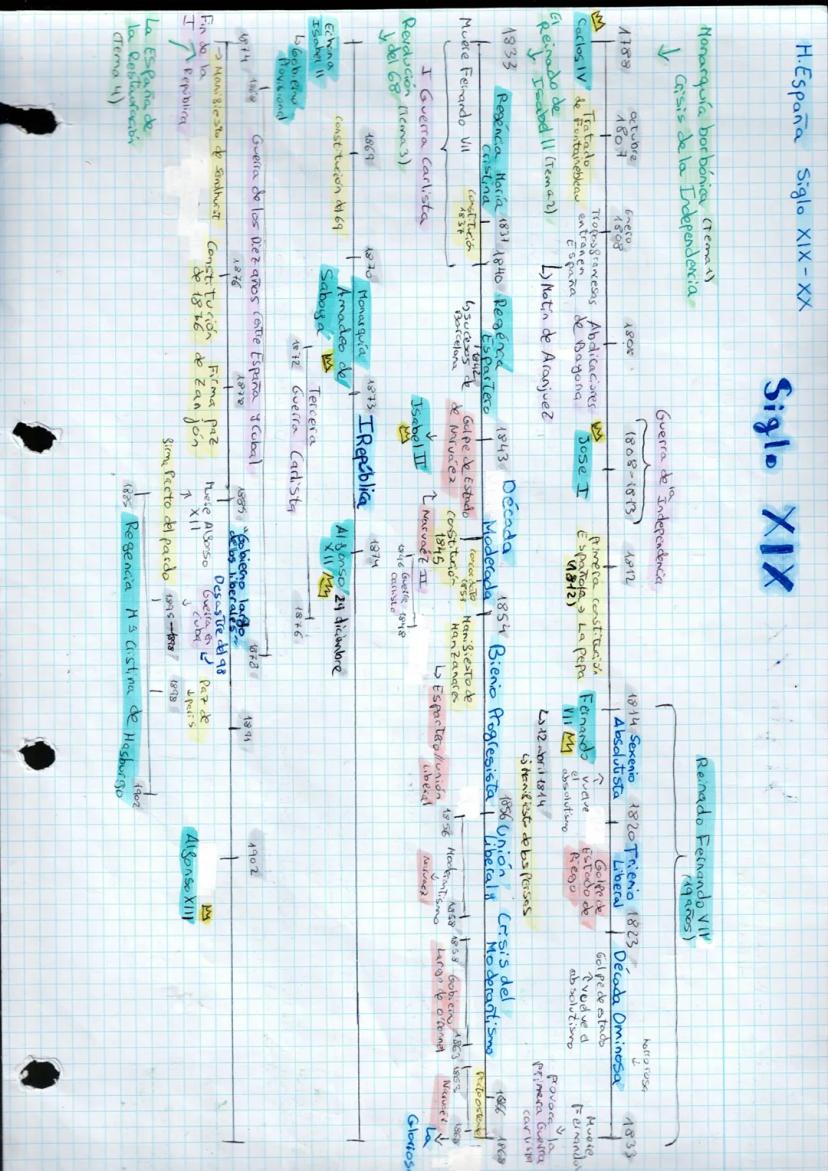 H. España Siglo XIX-XX
Siglo XIX
Monarquía borbónica (Tema 1)
Crisis de la Independencia
Guerra de la Independencia
Reinado Fernando VII
(19 años)
1788
octubre
1807
Enero
1808
1808
1808-1813
1812
1814 Sexenio
Absolutista
1820 Trienio
Liberal
1823
Década Ominosa
horrorosa
1833
Carlos IV
Tratado
de Fontainebleau
Tropas francesas
entran en
España
Motín de Aranjuez
Abdicaciones
de Bayona
Jose I
Primera constitución
Española → La pepa
(1812)
Fernando
VII
vuelve
el
absolutismo
12 abril 1814
Manifiesto de los persas
Golpe de
Estado de
Riego
Golpe de estado
vuelve el
absolutismo
Muere
Fernando
provoca la
primera Guerra
carlista
El
Reinado de
Isabel II (Tema 2)
1833
Regencia María
Cristina
1837
1840
Regencia
Espartero
1843
Década
Moderada
1854
Bienio Progresista
1856
Unión
Liberal y
Crisis del
Moderantismo
1866
1868
Muere Fernando VII
constitución
1837
I Guerra Carlista
1842
sucesos de
Barcelona
Golpe de Estado
de Narváez
Isabel II
Narváez II
constitución
1845
concordato
1851
1846 Guerra 1848
carlista
Manifiesto de
Manzanares
Espartero/unión
liberal
1856
Moderantismo
1858
Narváez
1858
Gobierno
Largo de O'Donnel
1863
1863
Narváez
1868
La
Gloriosa
Revolución (Tema 3)
del 68
Echan a
Isabel II
Gobierno
Provisional
1869
constitución del 69
1870
Monarquía
Amadeo de
Saboya
1873
I República
1874
Alfonso
XII
29 diciembre
1872
Tercera
Guerra Carlista
1876
1868
Guerra de los Diez años (entre España y Cuba)
1878
1874
Manifiesto de Sandhurst
Fin de la
I República
La España de
la Restauración
(Tema 4)
1876
Constitución
de 1876
1878
Firma paz
de Zanjón
1885
Muere Alfonso
XII
Pacto del pardo
"Gobierno largo
de los liberales"
Desastre del 98
Guerra en
Cuba
1895-1898
1898
Paz de
París
1891
1902
Alfonso XIII
1885
Regencia Mª Cristina de Hasburgo
1902